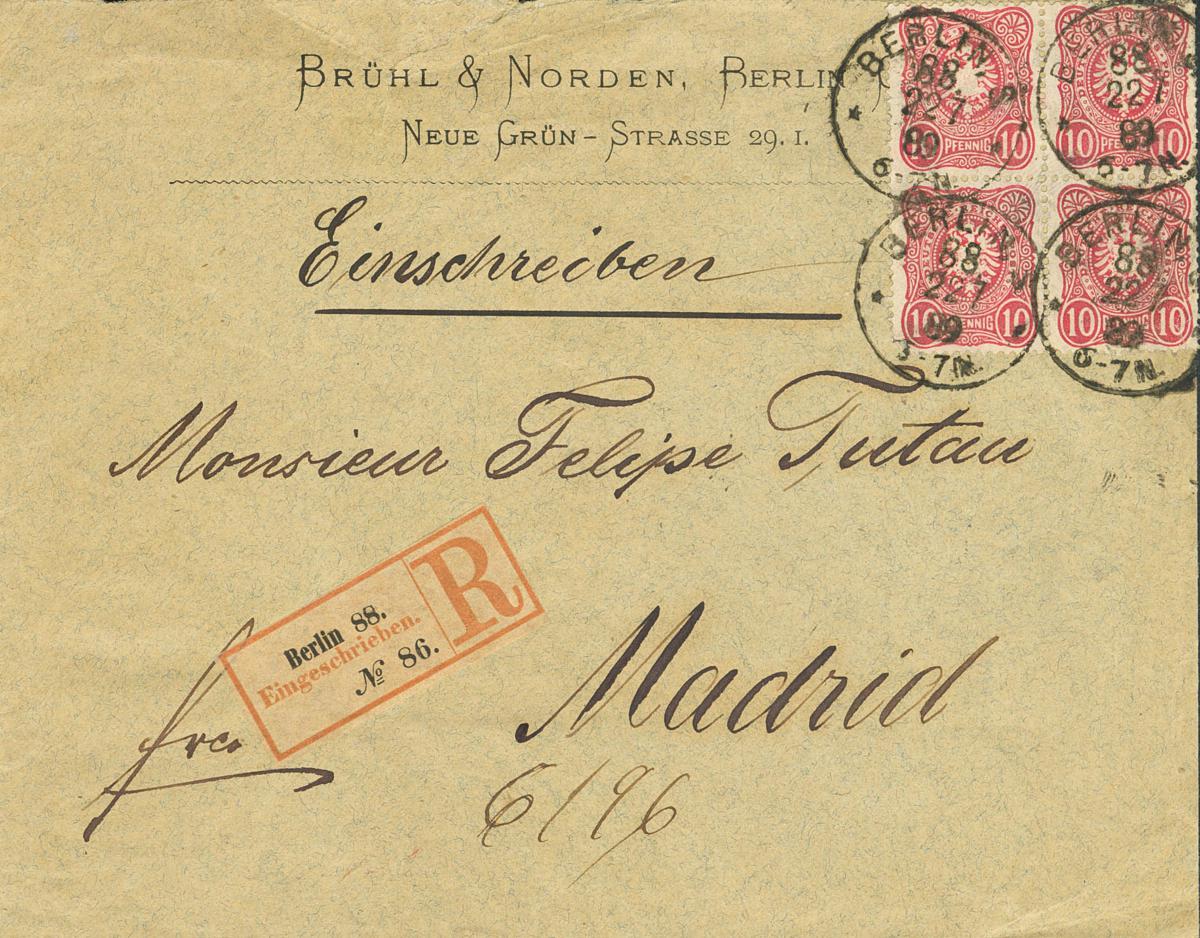 BRÜHL & NORDEN, BERLIN
NEUE GRÜN-STRASSE 29. I.
Einschreiben
BERLIN, S.
88
22 7
89
6-7N.
10 PFENNIG 10
BERLIN
88
22 7
89
6-7N.
10 10
BERLIN
88
22 7
89
-7N.
10 PFENNIG 10
BERLIN, S
88
22
89
6-7N.
10 10
Monsieur Felipe Tutau
Berlin 88.
Eingeschrieben.
№ 86.
R
Madrid
frco
6/96